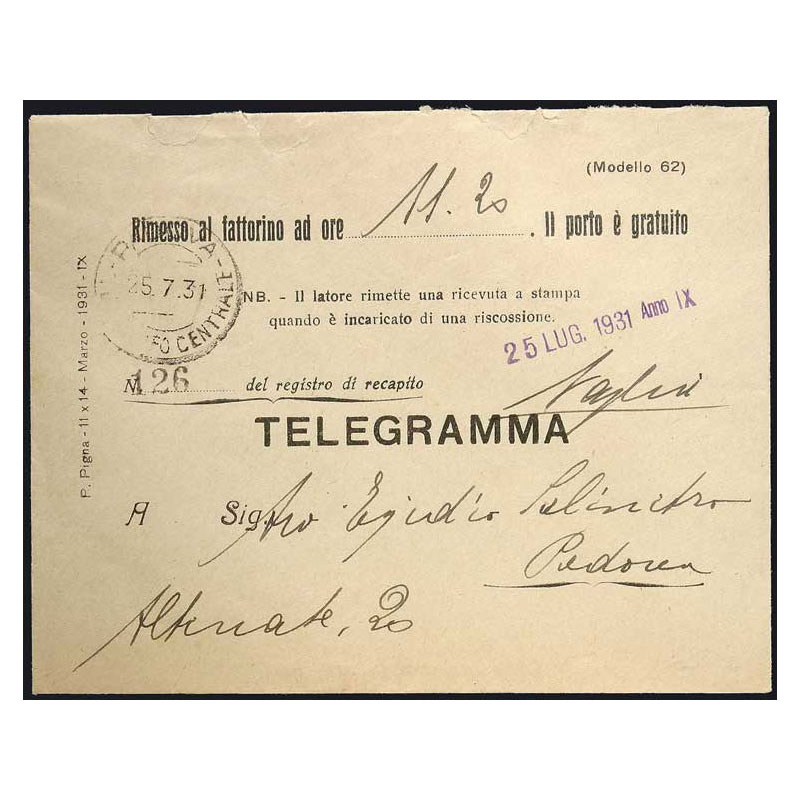 (Modello 62)
Rimesso al fattorino ad ore 11.20. Il porto è gratuito
25.7.31
CENTRALE
NB. - Il latore rimette una ricevuta a stampa
quando è incaricato di una riscossione.
25 LUG. 1931 Anno IX
N. 126 del registro di recapito
TELEGRAMMA
A Sig. Egidio
Padova
Altinate, 20
P. Pigna - 11 x 14 - Marzo - 1931 - IX